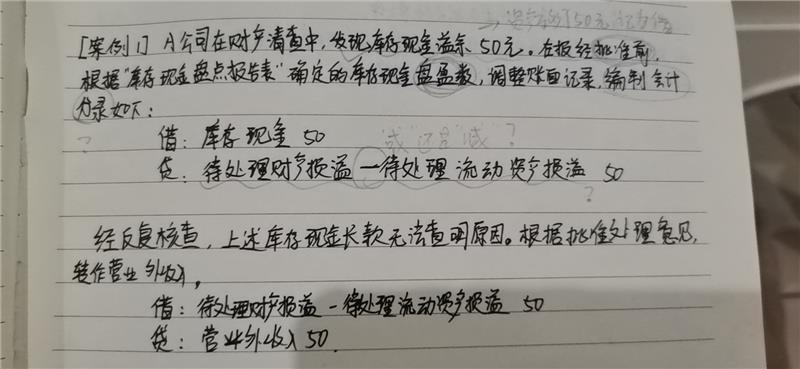 → 资产多了50元 记为借
[案例1] A公司在财产清查中，发现库存现金溢余50元。在报经批准前，
根据“库存现金盘点报告表”确定的库存现金盘盈数，调整账面记录，编制会计
分录如下：
? 借：库存现金 50 “或”还是“减”？
贷：待处理财产损溢—待处理流动资产损溢 50
?
经反复核查，上述库存现金长款无法查明原因。根据批准处理意见，
转作营业外收入。
借：待处理财产损溢－待处理流动资产损溢 50
贷：营业外收入 50.